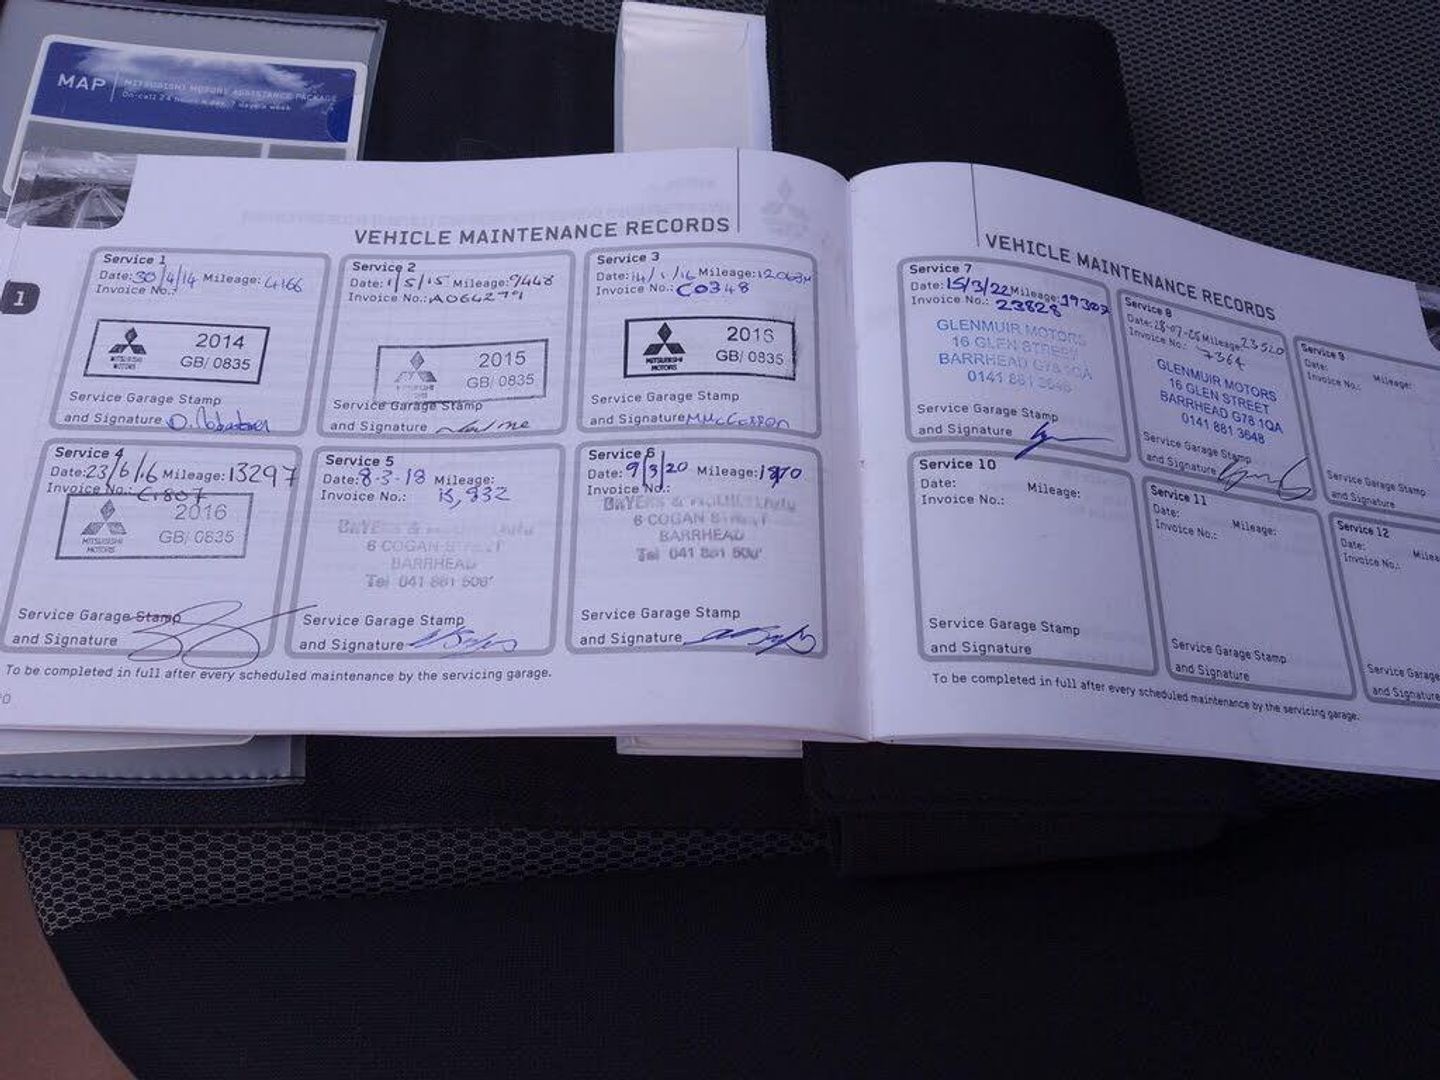 MAP MITSUBISHI MOTORS ASSISTANCE PACKAGE
On-call 24 hours a day, 7 days a week
1
VEHICLE MAINTENANCE RECORDS
Service 1
Date: 30/4/14 Mileage: 4166
Invoice No.:
2014
GB/ 0835
MITSUBISHI
MOTORS
Service Garage Stamp
and Signature
Service 2
Date: 1/5/15 Mileage: 9448
Invoice No.: A064279
2015
GB/ 0835
Service Garage Stamp
and Signature
Service 3
Date: 14/1/16 Mileage: 12063M
Invoice No.: C0348
2016
GB/ 0835
MITSUBISHI
MOTORS
Service Garage Stamp
and Signature
Service 4
Date: 23/6/16 Mileage: 13297
Invoice No.: C1807
2016
GB/ 0835
MITSUBISHI
MOTORS
Service Garage Stamp
and Signature
Service 5
Date: 8-3-18 Mileage:
Invoice No.: 15,932
6 COGAN STREET
BARRHEAD
Tel 041 881
Service Garage Stamp
and Signature
Service 6
Date: 9/3/20 Mileage:
Invoice No.:
6 COGAN STREET
BARRHEAD
Tel 041 881
Service Garage Stamp
and Signature
To be completed in full after every scheduled maintenance by the servicing garage.
VEHICLE MAINTENANCE RECORDS
Service 7
Date: 15/3/22 Mileage: 19302
Invoice No.: 23828
GLENMUIR MOTORS
16 GLEN STREET
BARRHEAD G78 1QA
0141 881 3648
Service Garage Stamp
and Signature
Service 8
Date: Mileage: 23520
Invoice No.: 7364
GLENMUIR MOTORS
16 GLEN STREET
BARRHEAD G78 1QA
0141 881 3648
Service Garage Stamp
and Signature
Service 9
Date: Mileage:
Invoice No.:
Service Garage Stamp
and Signature
Service 10
Date: Mileage:
Invoice No.:
Service Garage Stamp
and Signature
Service 11
Date: Mileage:
Invoice No.:
Service Garage Stamp
and Signature
Service 12
Date:
Invoice No.:
Service Garage
and Signature
To be completed in full after every scheduled maintenance by the servicing garage.